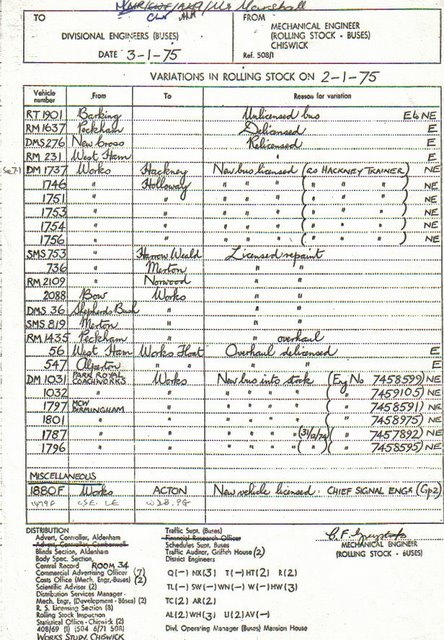 TO
DIVISIONAL ENGINEERS (BUSES)
DATE 3-1-75
FROM
MECHANICAL ENGINEER
(ROLLING STOCK - BUSES)
CHISWICK
Ref. 508/1
VARIATIONS IN ROLLING STOCK ON 2-1-75
Vehicle number From To Reason for variation
RT 1901 Barking Unlicensed bus E & NE
RM 1637 Peckham Delicensed E
DMS 276 New Cross Relicensed E
RM 231 West Ham " E
DM 1737 Works Hackney New bus licensed (as HACKNEY TRAINER) NE
1746 " Holloway " " " ( " " " ) NE
1751 " " " " " ( " " " ) NE
1753 " " " " " ( " " " ) NE
1754 " " " " " ( " " " ) NE
1756 " " " " " ( " " " ) NE
SMS 753 " Harrow Weald Licensed repaint
736 " Merton " "
RM 2109 " Norwood " "
2088 Bow Works " "
DMS 36 Shepherds Bush " " "
SMS 819 Merton " " "
RM 1435 Peckham " " overhaul
56 West Ham Works Float Overhaul delicensed E
547 Alperton " " " " E
DM 1031 PARK ROYAL COACHWORKS Works New bus into stock (Eng No 7458599) NE
1032 " " " " " " ( " 7459105) NE
1797 MCW BIRMINGHAM " " " " " ( " 7458591) NE
1801 " " " " " " ( " 7458975) NE
1787 " " " " " " (31/12/74) ( " 7457892) NE
1796 " " " " " " ( " ) ( " 7458595) NE
MISCELLANEOUS
1880F Works ACTON New vehicle licensed. CHIEF SIGNAL ENGR (Gp2)
DISTRIBUTION
Advert. Controller, Aldenham
Blinds Section, Aldenham
Body Spec. Section,
Central Record ROOM 34
Commercial Advertising Officer (7)
Costs Office (Mech. Engr.-Buses) (2)
Scientific Adviser (2)
Distribution Services Manager
Mech. Engr. (Development - Buses) (2)
R. S. Licensing Section (8)
Rolling Stock Inspection
Statistical Office - Chiswick (2)
WORKS STUDY, CHISWICK
Traffic Supt. (Buses)
Financial Research Officer
Schedules Supt. Buses
Traffic Auditor, Griffith House (2)
District Engineers
Q(-) NX(3) T(-) HT(2) R(2)
TL(-) SW(-) WN(-) W(-) HW(3)
TC(2) AR(2)
AL(2) WH(3) U(2) AV(-)
Divl. Operating Manager (Buses) Mansion House
MECHANICAL ENGINEER
(ROLLING STOCK - BUSES)